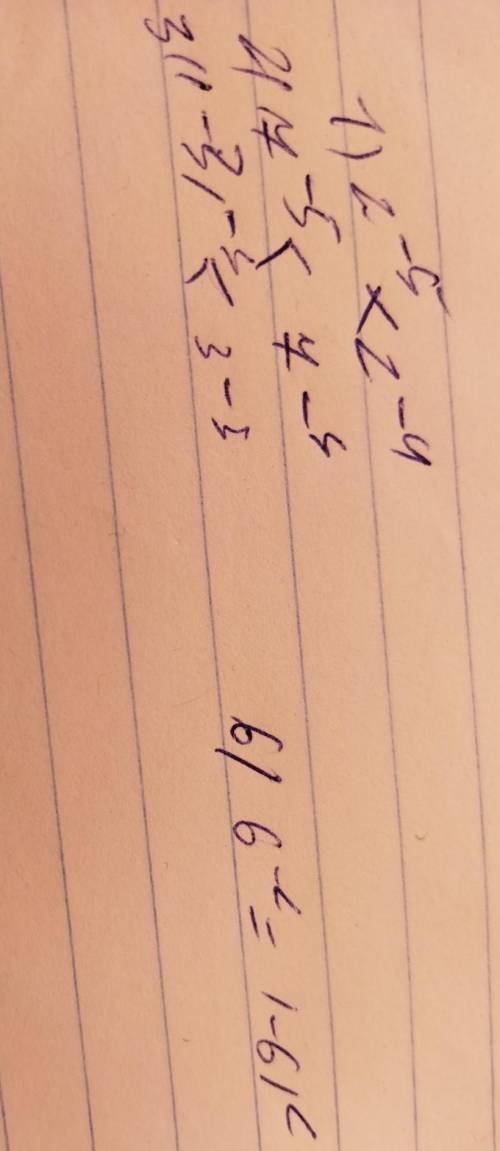 1) 2⁻⁵ < 2⁻⁴
2) 4⁻⁵ < 4⁻⁴
3) (-3)⁻⁵ < 3⁻³
6) 6⁻² = (-6)²